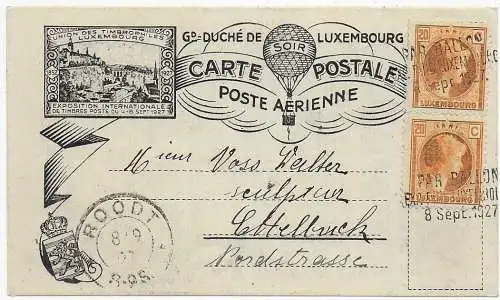 UNION DES TIMBROPHILES
LUXEMBOURG
1852
1927
EXPOSITION INTERNATIONALE
DE TIMBRES POSTE DU 4-18 SEPT 1927
GD-DUCHÉ DE LUXEMBOURG
SOIR
CARTE POSTALE
POSTE AÉRIENNE
20
LUXEMBOURG
20 C
LUXEMBOURG
PAR BALLON
8 Sept. 1927
Voss Walter
sculpteur
Ettelbrück
Nordstrasse
ROODT
8 9